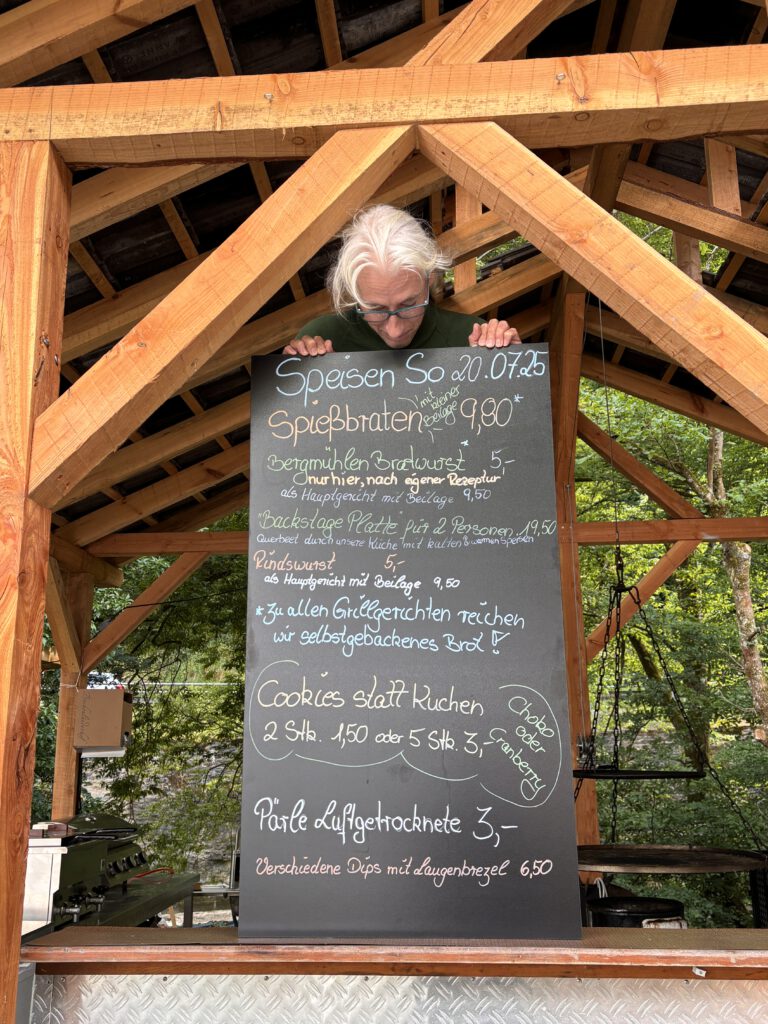 Speisen So 20.07.25
Spießbraten mit kleiner Beilage 9,80*
Bergmühlen Bratwurst* 5,-
nur hier, nach eigener Rezeptur
als Hauptgericht mit Beilage 9,50
"Backstage Platte" für 2 Personen 19,50
Querbeet durch unsere Küche mit kalten & warmen Speisen
Rindswurst 5,-
als Hauptgericht mit Beilage 9,50
*Zu allen Grillgerichten reichen
wir selbstgebackenes Brot!
Cookies statt Kuchen
2 Stk. 1,50 oder 5 Stk. 3,-
Choko
oder
Cranberry
Pärle Luftgetrocknete 3,-
Verschiedene Dips mit Laugenbrezel 6,50